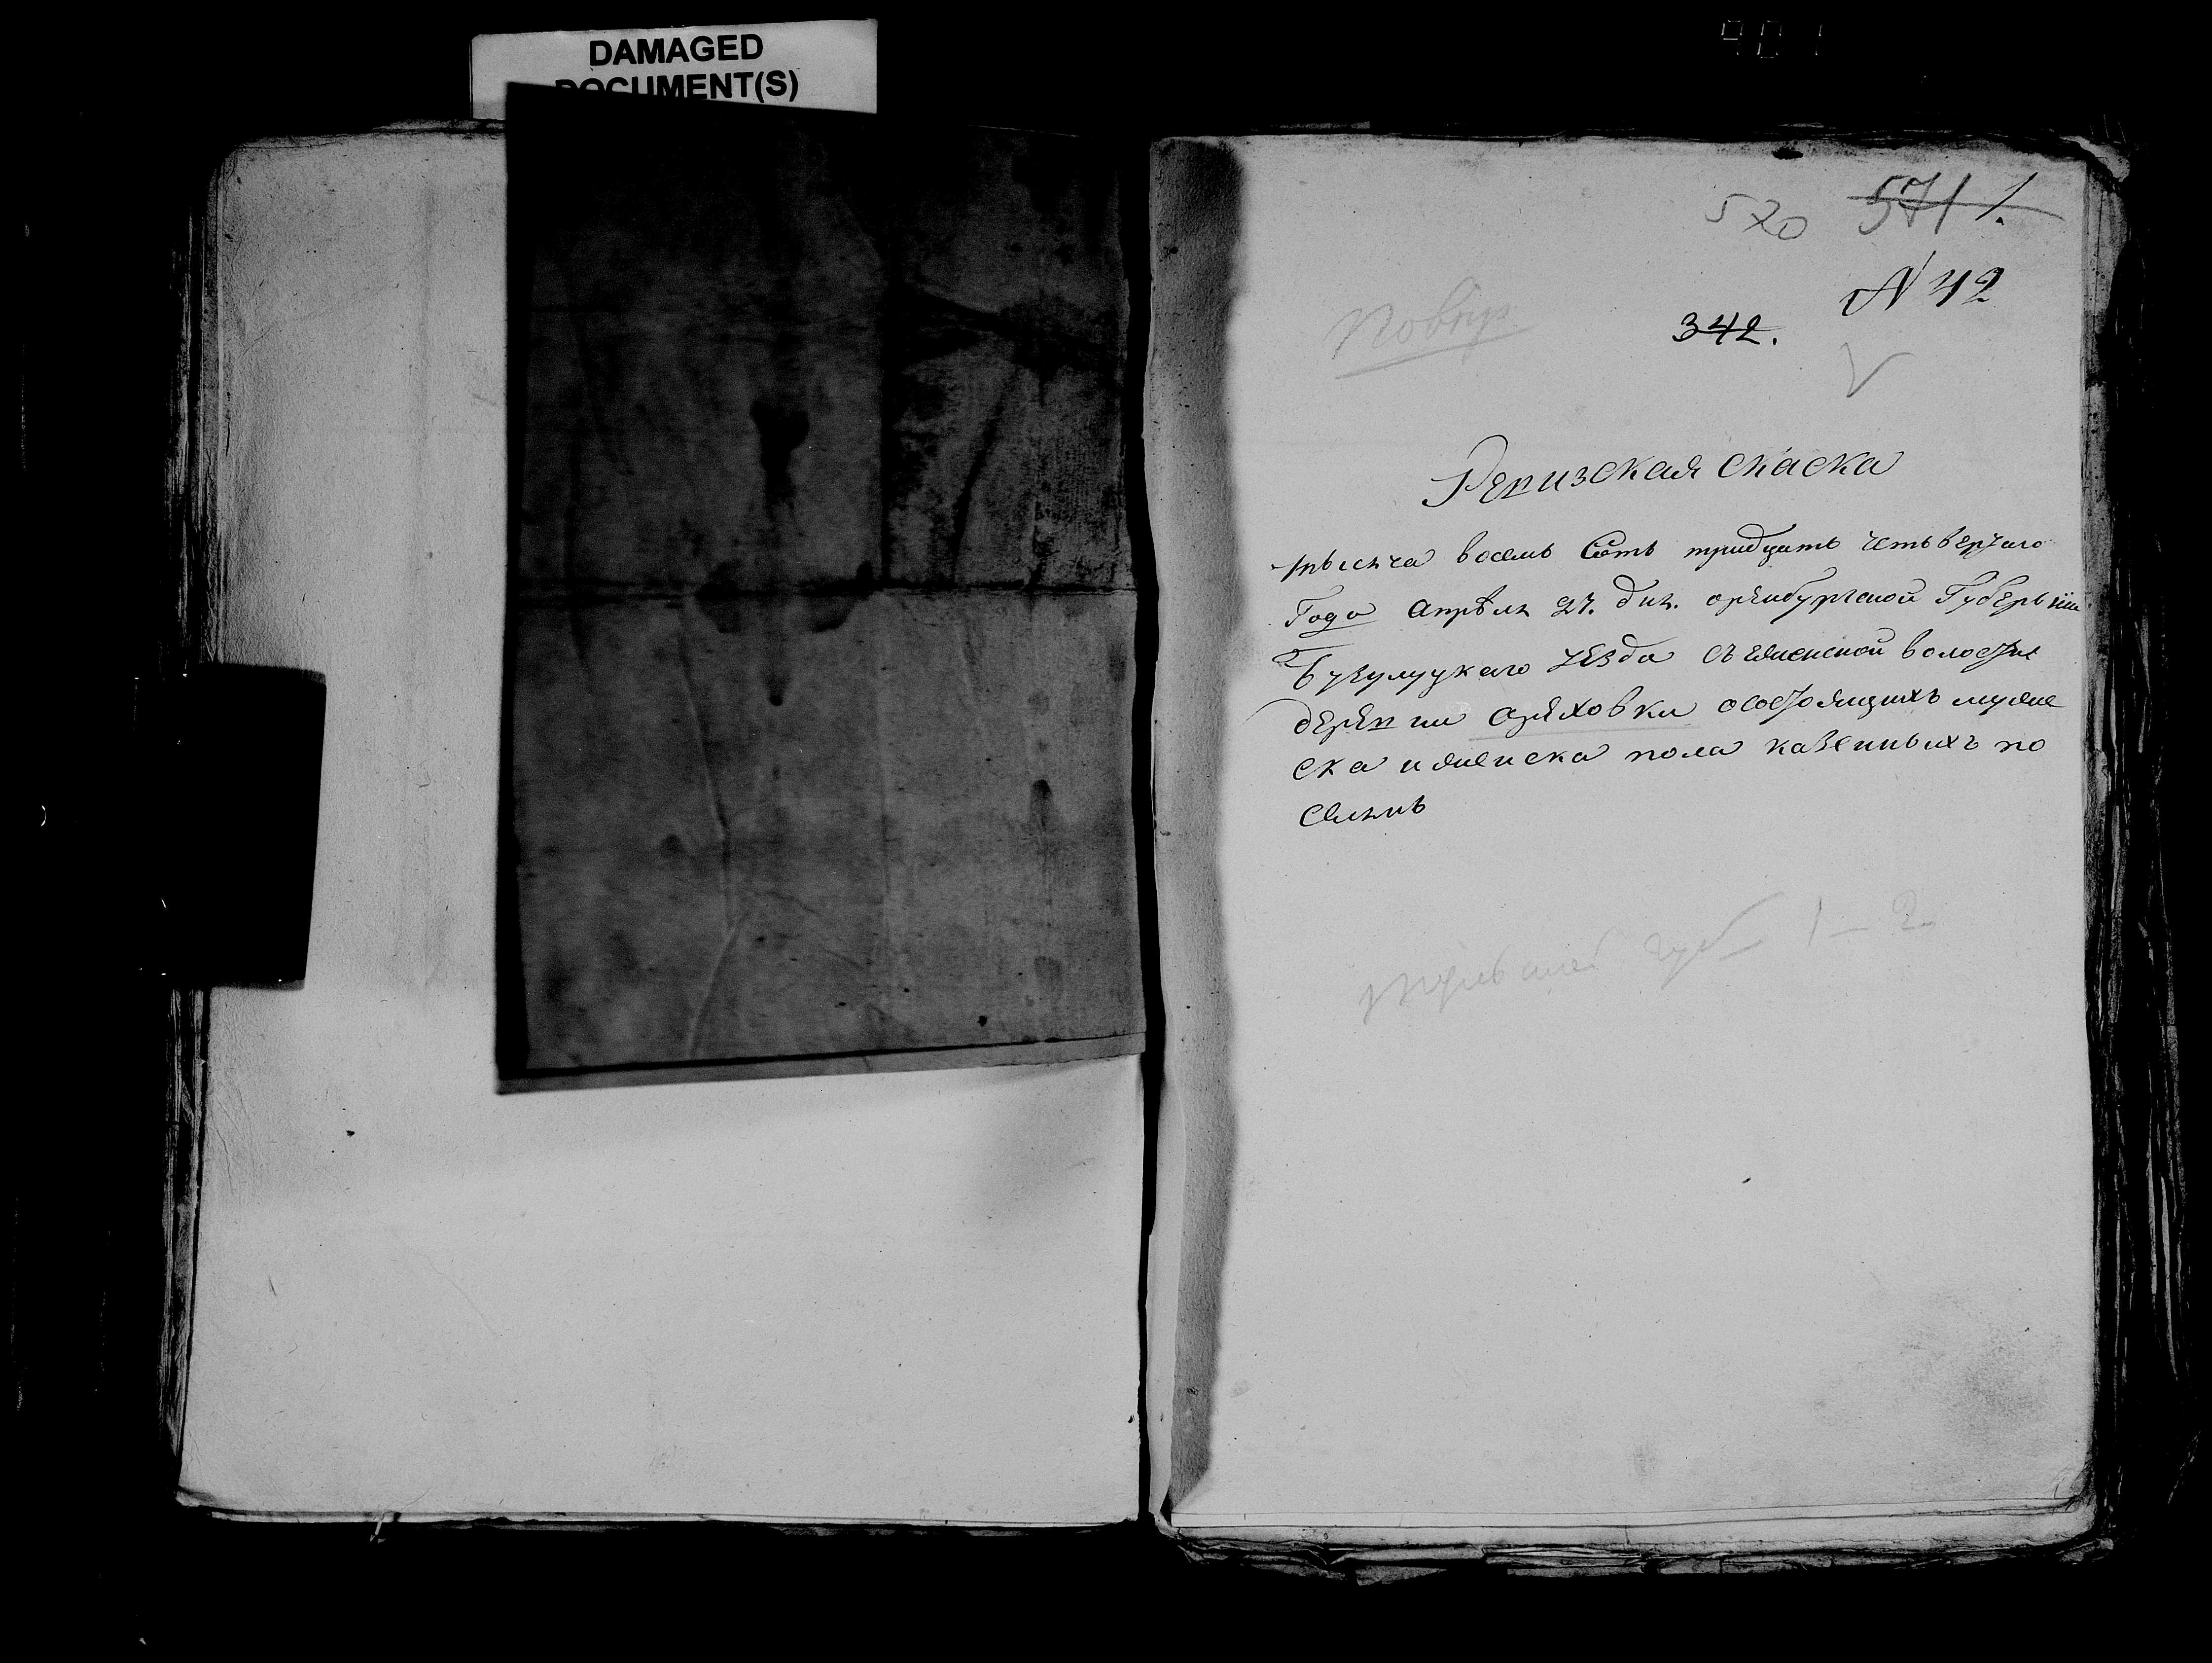 DAMAGED
DOCUMENT(S)
901
520 571 1.
N 42
Повтор
342.
Ревизская скаска
тысяча восемь Сотъ тридцать четьвертаго
Года апрѣля 27. дня. оренбургской Губерьнии
Бузулуцкаго уезда съезженской волости
деревни оряховки осостоящихъ мужие
ска ижениска пола казенныхъ по
селянъ
1 – 2